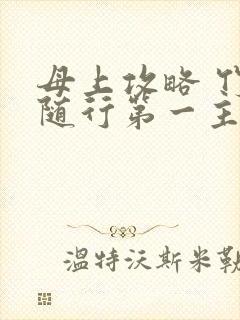 母上攻略
随行第一主
温特沃斯米勒